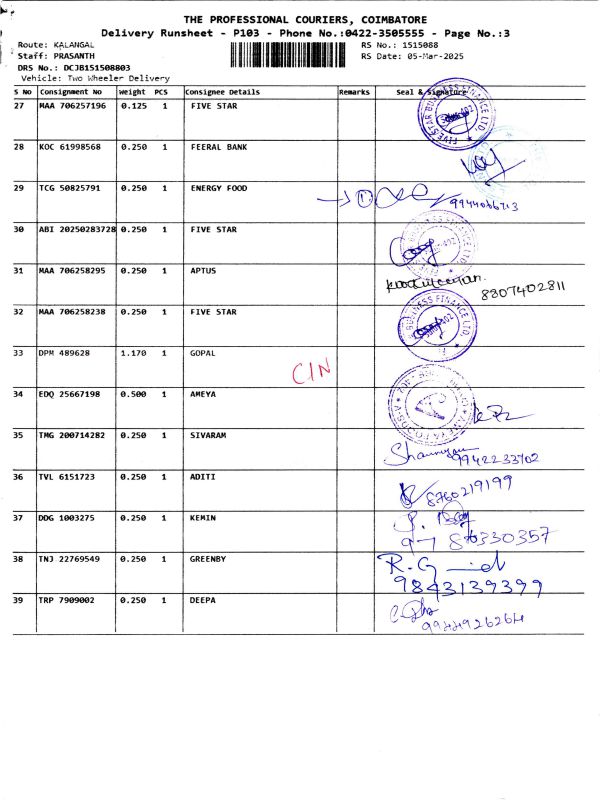 THE PROFESSIONAL COURIERS, COIMBATORE
Delivery Runsheet - P103 - Phone No.:0422-3505555 - Page No.:3
Route: KALANGAL
RS No.: 1515088
Staff: PRASANTH
RS Date: 05-Mar-2025
DRS No.: DCJB151508803
Vehicle: Two Wheeler Delivery
S No Consignment No Weight PCS Consignee Details Remarks Seal & Signature
27 MAA 706257196 0.125 1 FIVE STAR
FIVE STAR BUSINESS FINANCE LTD.
28 KOC 61998568 0.250 1 FEERAL BANK
29 TCG 50825791 0.250 1 ENERGY FOOD
30 ABI 20250283728 0.250 1 FIVE STAR
31 MAA 706258295 0.250 1 APTUS
8807402811
32 MAA 706258238 0.250 1 FIVE STAR
BUSINESS FINANCE LTD.
33 DPM 489628 1.170 1 GOPAL C/N
34 EDQ 25667198 0.500 1 AMEYA
35 TMG 200714282 0.250 1 SIVARAM
9942233702
36 TVL 6151723 0.250 1 ADITI
8760219199
37 DDG 1003275 0.250 1 KEMIN
38 TNJ 22769549 0.250 1 GREENBY
9843139399
39 TRP 7909002 0.250 1 DEEPA